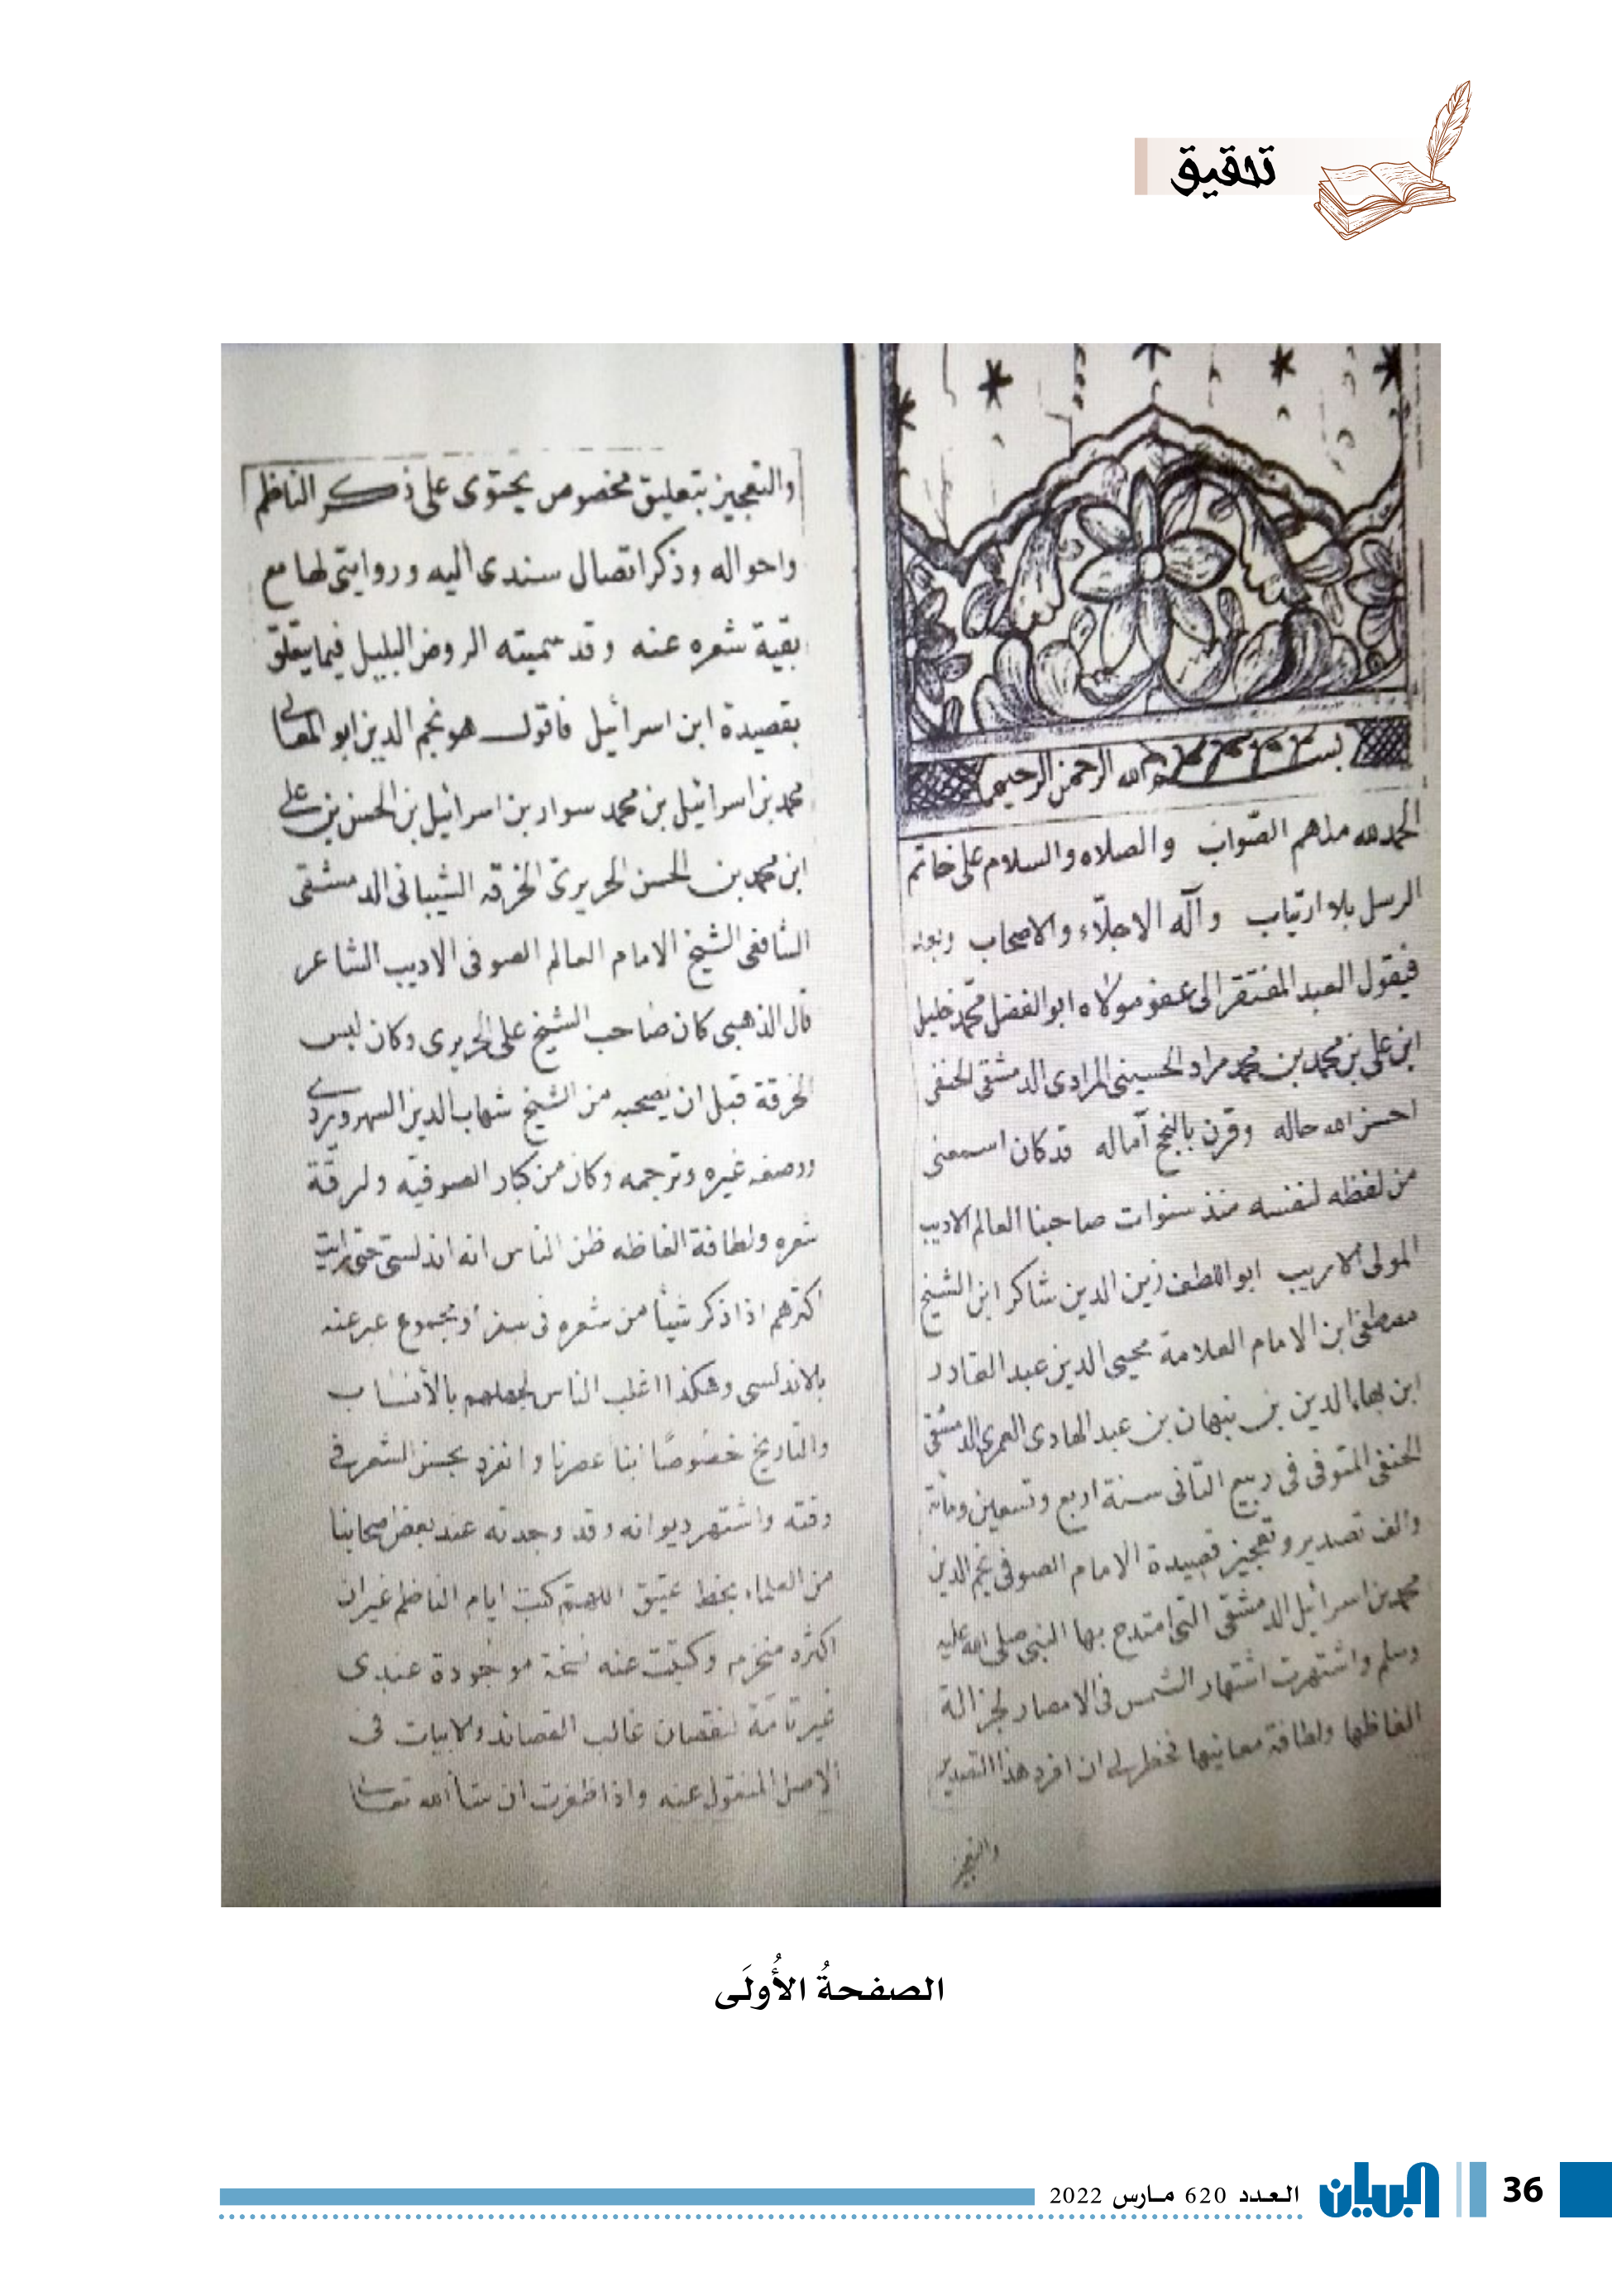 تحقيق
بسم الله الرحمن الرحيم
الحمد لله ملهم الصّواب والصلاه والسلام على خاتم
الرسل بلا ارتياب وآله الاجلّاء والاصحاب وبعد
فيقول العبد المفتقر الى عفو مولاه ابو الفضل محمّد خليل
ابن على بن محمد بن محمد مراد الحسيني المرادى الدمشقى الحنفى
احسن الله حاله وقرن بالنجح آماله قد كان اسمعنى
من لفظه لنفسه منذ سنوات صاحبنا العالم الاديب
المولى الاريب ابو اللطف زين الدين شاكر ابن الشيخ
مصطفى ابن الامام العلامة محيى الدين عبد القادر
ابن بهاء الدين بن نبهان بن عبد الهادى العمرى الدمشقى
الحنفى المتوفى فى ربيع الثانى سنة اربع وتسعين ومائة
والف تصدير وتعجيز قصيدة الامام الصوفى نجم الدين
محمد بن اسرائيل الدمشقى التى امتدح بها النبى صلى الله عليه
وسلم واشتهرت اشتهار الشمس فى الامصار لجزالة
الفاظها ولطافة معانيها فخطر لى ان افرد هذا التصدير
والتعجيز
والتعجيز بتعليق مخصوص يحتوى على ذكر الناظم
واحواله وذكر اتصال سندى اليه وروايتى لها مع
بقية شعره عنه وقد سميته الروض البليل فيما يتعلق
بقصيدة ابن اسرائيل فاقول هو نجم الدين ابو المعالى
محمد بن اسرائيل بن محمد سوار بن اسرائيل بن الحسن بن على
ابن محمد بن الحسن الحريرى الخرقه الشيبانى الدمشقى
الشافعى الشيخ الامام العالم الصوفى الاديب الشاعر
قال الذهبى كان صاحب الشيخ على الحريرى وكان لبس
الخرقة قبل ان يصحبه من الشيخ شهاب الدين السهروردى
ووصفه غيره وترجمه وكان من كبار الصوفيه ولرقّة
شعره ولطافة الفاظه ظن الناس انه اندلسى حتى رايت
اكثرهم اذا ذكر شيأ من شعره فى سفر او مجموع عبر عنه
بالاندلسى وهكذا اغلب الناس لجهلهم بالأنساب
والتاريخ خصوصًا ابنا عصرنا وانفرد بحسن الشعر فى
وقته واشتهر ديوانه وقد وجدته عند بعض اصحابنا
من العلماء بخط عتيق اللهم كتب ايام الناظم غير ان
اكثره منخرم وكتبت عنه نسخة موجودة عندى
غير تامّة لنقصان غالب القصائد والابيات فى
الاصل المنقول عنه واذا ظفرت ان شأ الله تعالى
الصفحةُ الأُولَى
36 البيان العدد 620 مارس 2022